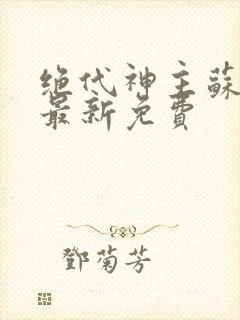 绝代神主蘇
最新免費
鄧菊芳